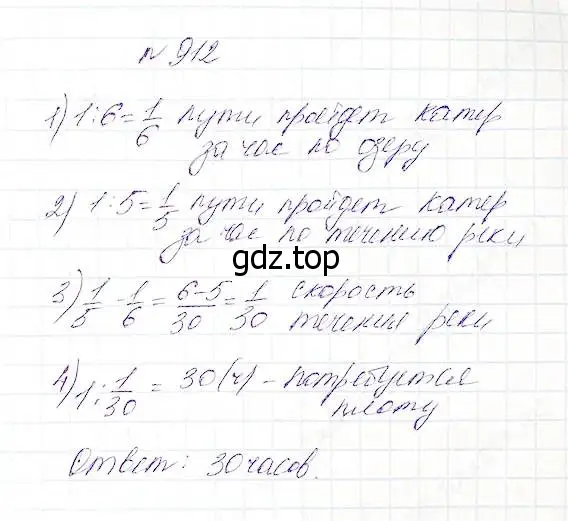 № 912
1) 1:6=1/6 пути пройдет катер
за час по озеру
2) 1:5=1/5 пути пройдет катер
за час по течению реки
gdz.top
3) 1/5 - 1/6 = 6-5/30 = 1/30 скорость
течения реки
4) 1:1/30 = 30(ч) - потребуется
плоту
Ответ: 30 часов.